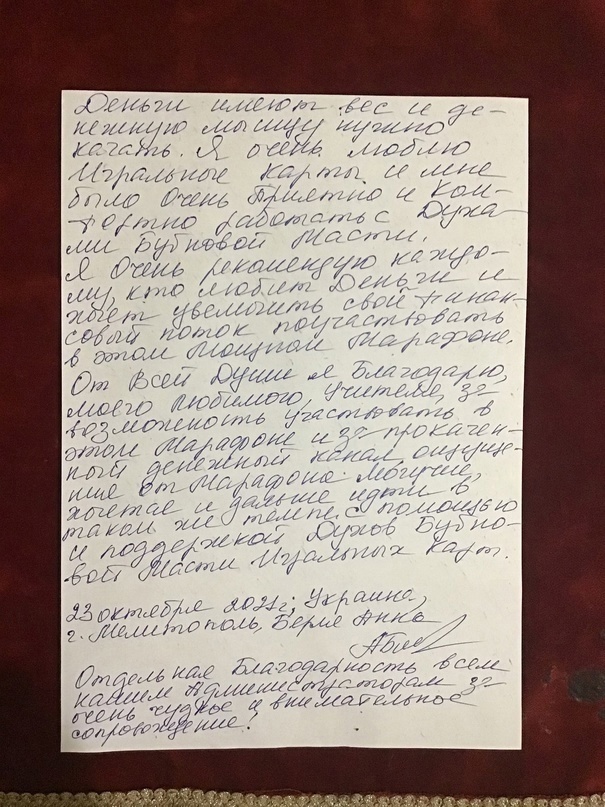 Деньги имеют вес и де-
нежную мышцу нужно
качать. Я очень люблю
Игральные карты и мне
было очень Приятно и Ком-
фортно работать с Духа-
ми Бубновой Масти.
Я Очень рекомендую каждо-
му, кто любит Деньги и
хочет увеличить свой Финан-
совый поток поучаствовать
в этом Мощном Марафоне.
От Всей Души я Благодарю,
моего Любимого, Учителя, за
возможность участвовать в
этом Марафоне и за прокачен-
ный денежный канал, ощуще-
ние от Марафона: Могучие,
хочется и дальше идти в
таком же темпе, с помощью
и поддержкой Духов Бубно-
вой Масти Игральных Карт.
23 октября 2021г; Украина,
г. Мелитополь, Анна
Отдельная Благодарность всем
нашим Администраторам за
очень чуткое и внимательное
сопровождение!